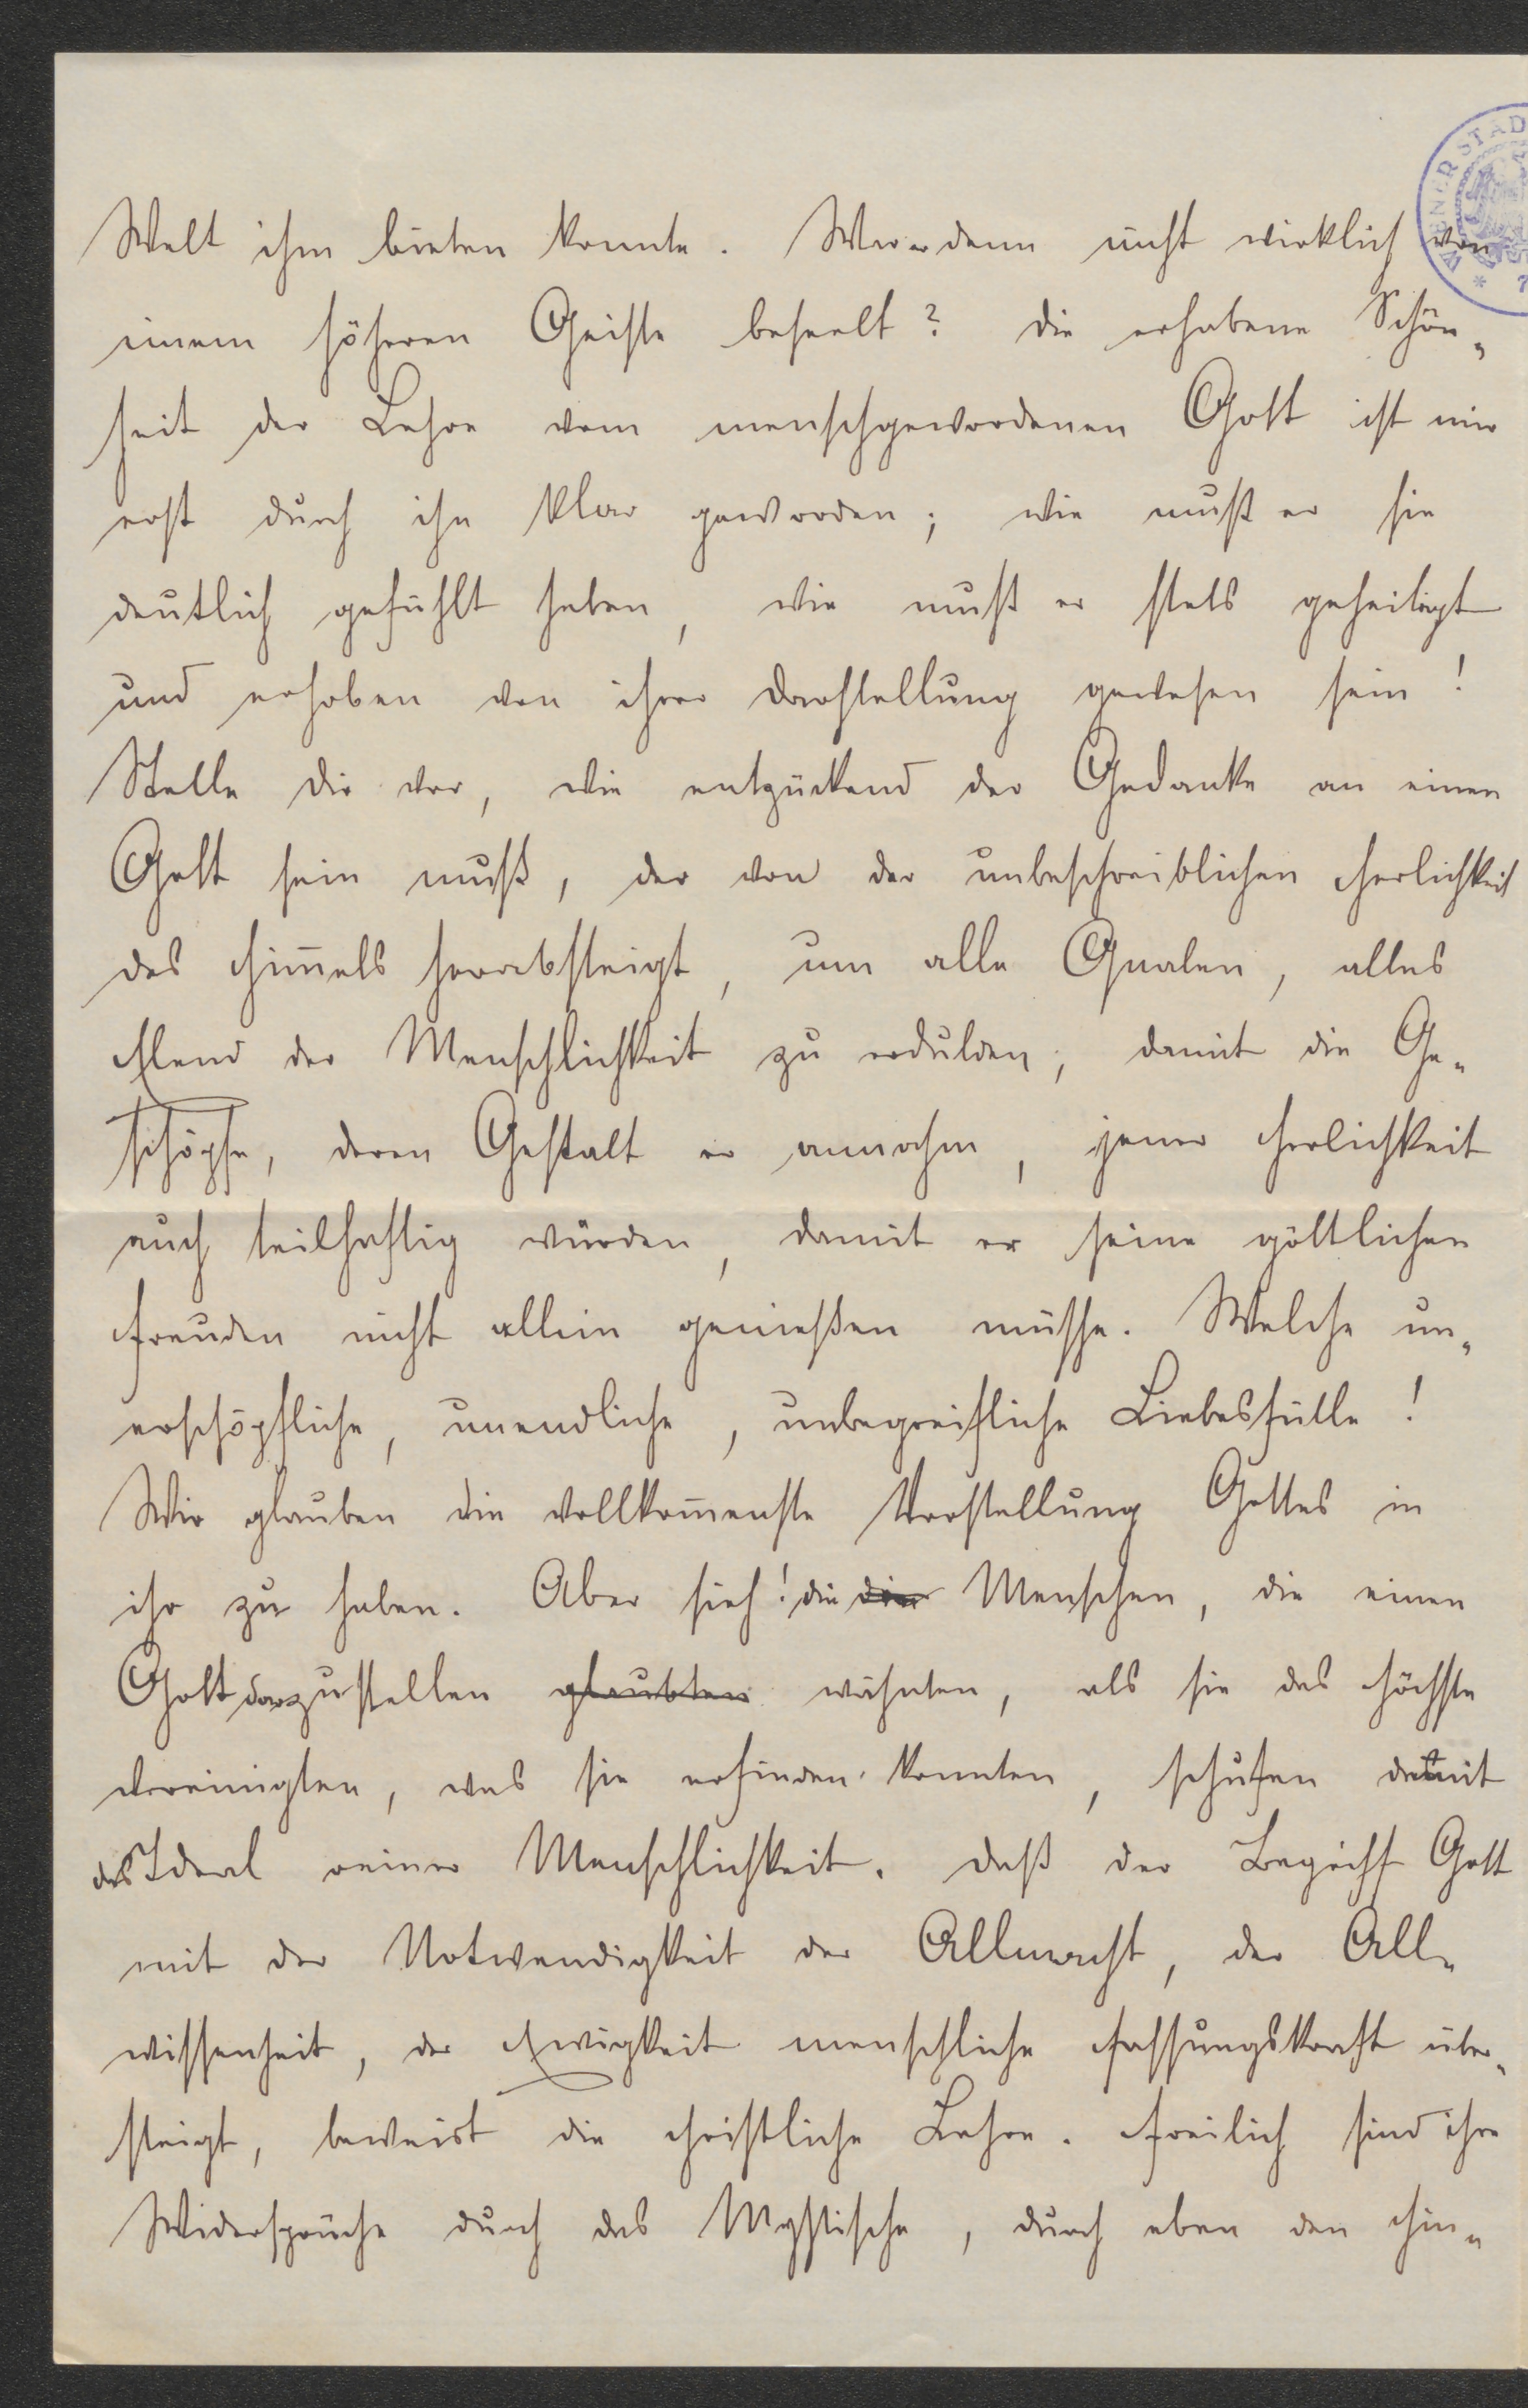 Welt ihm bieten konnte. War er denn nicht wirklich von
einem höheren Geiste beseelt? Die erhabene Schön-
heit der Lehre vom menschgewordenen Gott ist mir
erst durch ihn klar geworden; wie muß er sie
deutlich gefühlt haben, wie muß er stets geheiligt
und erhoben von ihrer Darstellung gewesen sein!
Stelle dir vor, wie entzückend der Gedanke an einen
Gott sein muß, der von der unbeschreiblichen Herlichkeit
des Him̄els herabsteigt, um alle Qualen, alles
Elend der Menschlichkeit zu erdulden, damit die Ge-
schöpfe, deren Gestalt er annahm, jener Herlichkeit
auch teilhaftig würden, damit er seine göttlichen
Freuden nicht allein genießen müsse. Welche un-
erschöpfliche, unendliche, unbegreifliche Liebesfülle!
Wir glauben die vollkom̄enste Vorstellung Gottes in
ihr zu haben. Aber sieh! die die Menschen, die einen
Gott darzustellen glaubten wähnten, als sie das Höchste
vereinigten, was sie erfinden konnten, schufen damit
das Ideal reiner Menschlichkeit. Daß der Begriff Gott
mit der Notwendigkeit der Allmacht, der All-
wissenheit, der Ewigkeit menschliche Fassungskraft über-
steigt, beweist die christliche Lehre. Freilich sind ihre
Widersprüche durch das Mystische, durch eben den Hin-
WIENER STAD